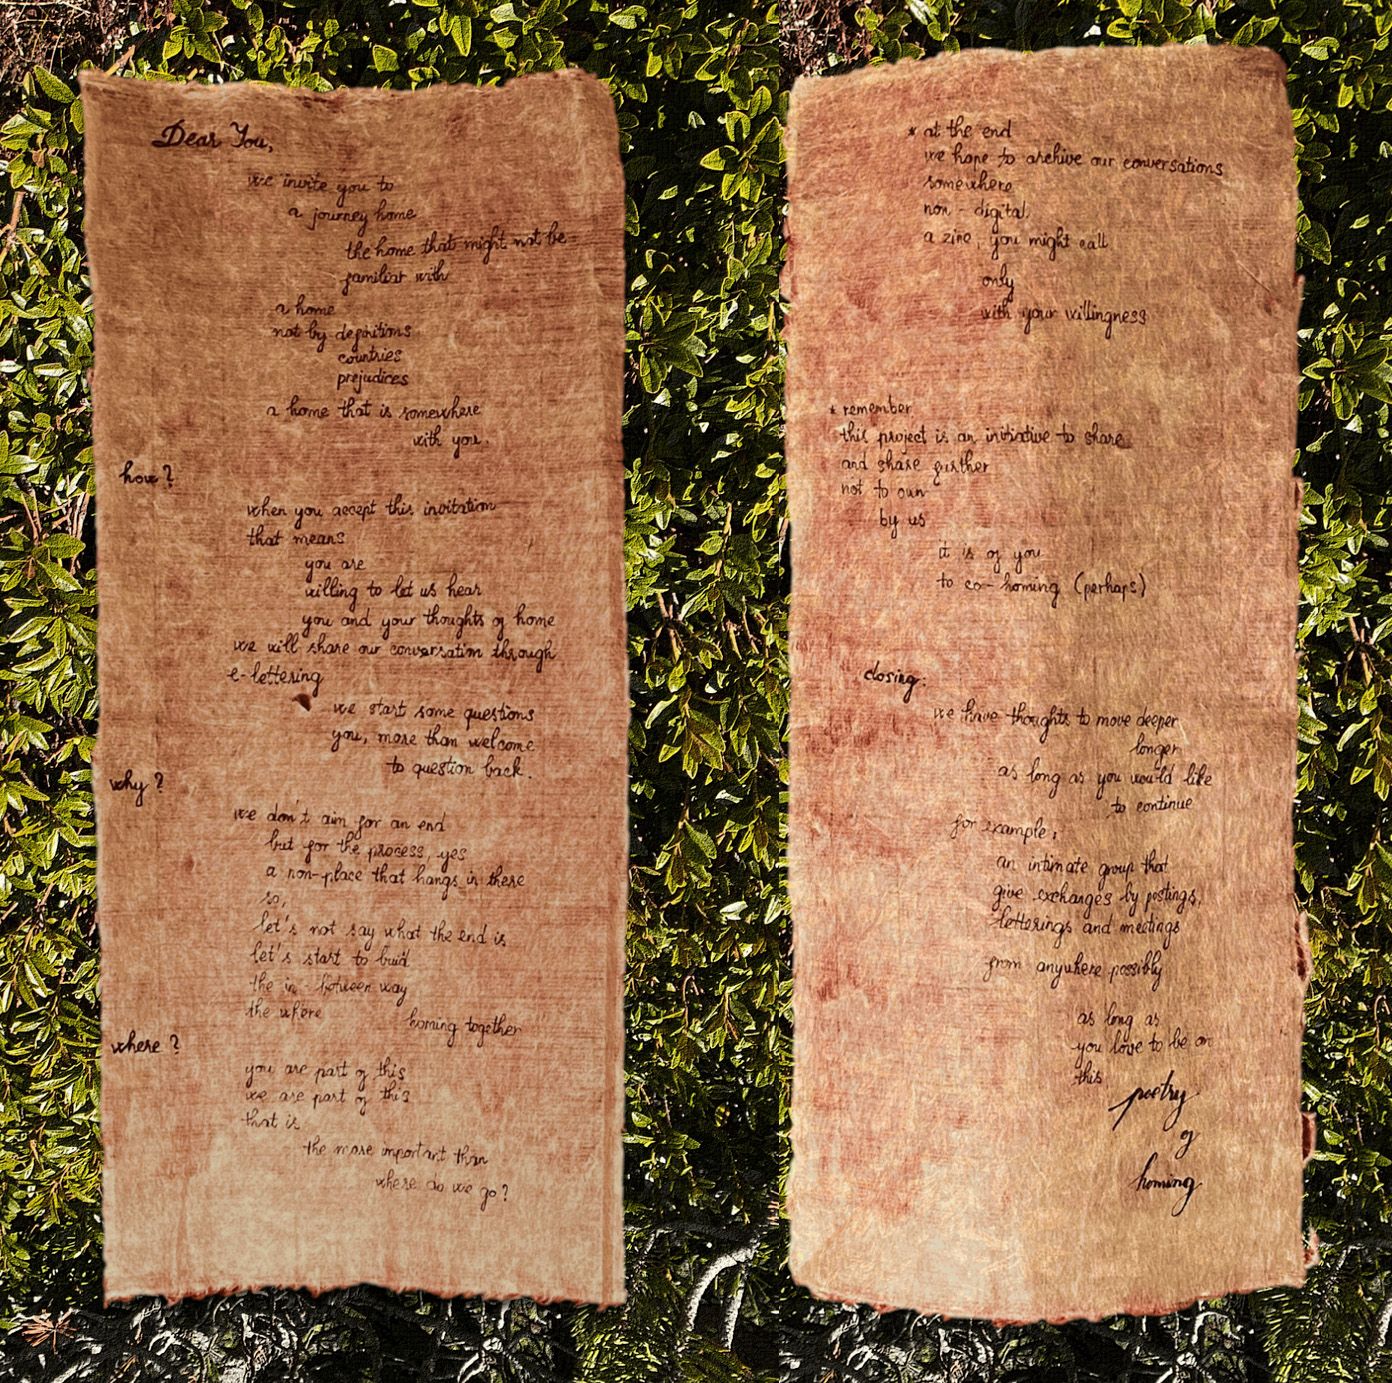 Dear You,
we invite you to
a journey home
the home that might not be
familiar with
a home
not by definitions
countries
prejudices
a home that is somewhere
with you.
how?
when you accept this invitation
that means
you are
willing to let us hear
you and your thoughts of home
we will share our conversation through
e-lettering
we start some questions
you, more than welcome
to question back.
why?
we don't aim for an end
but for the process, yes
a non-place that hangs in there
so,
let's not say what the end is
let's start to build
the in-between way
the where
homing together
where?
you are part of this
we are part of this
that is
the more important than
where do we go?
* at the end
we hope to archive our conversations
somewhere
non-digital
a zine, you might call
only
with your willingness
* remember
this project is an initiative to share
and share further
not to own
by us
it is of you
to co-homing (perhaps)
closing:
we have thoughts to move deeper
longer
as long as you would like
to continue
for example,
an intimate group that
give exchanges by postings,
letterings and meetings
from anywhere possibly
as long as
you love to be on
this
poetry
of
homing